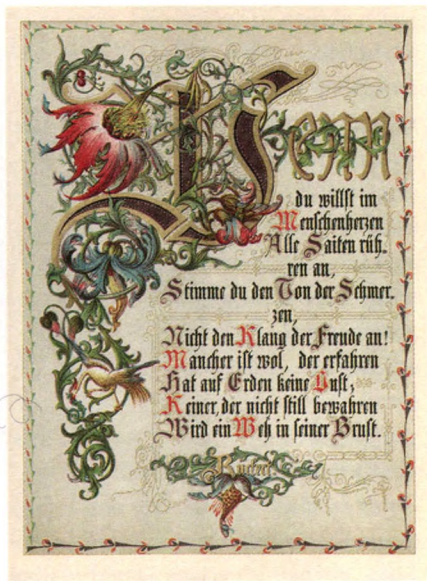 Wenn
du willst im
Menschenherzen
Alle Saiten rüh-
ren an,
Stimme du den Ton der Schmer-
zen,
Nicht den Klang der Freude an!
Mancher ist wol, der erfahren
Hat auf Erden keine Lust,
Keiner, der nicht still bewahren
Wird ein Weh in seiner Brust.
Rückert